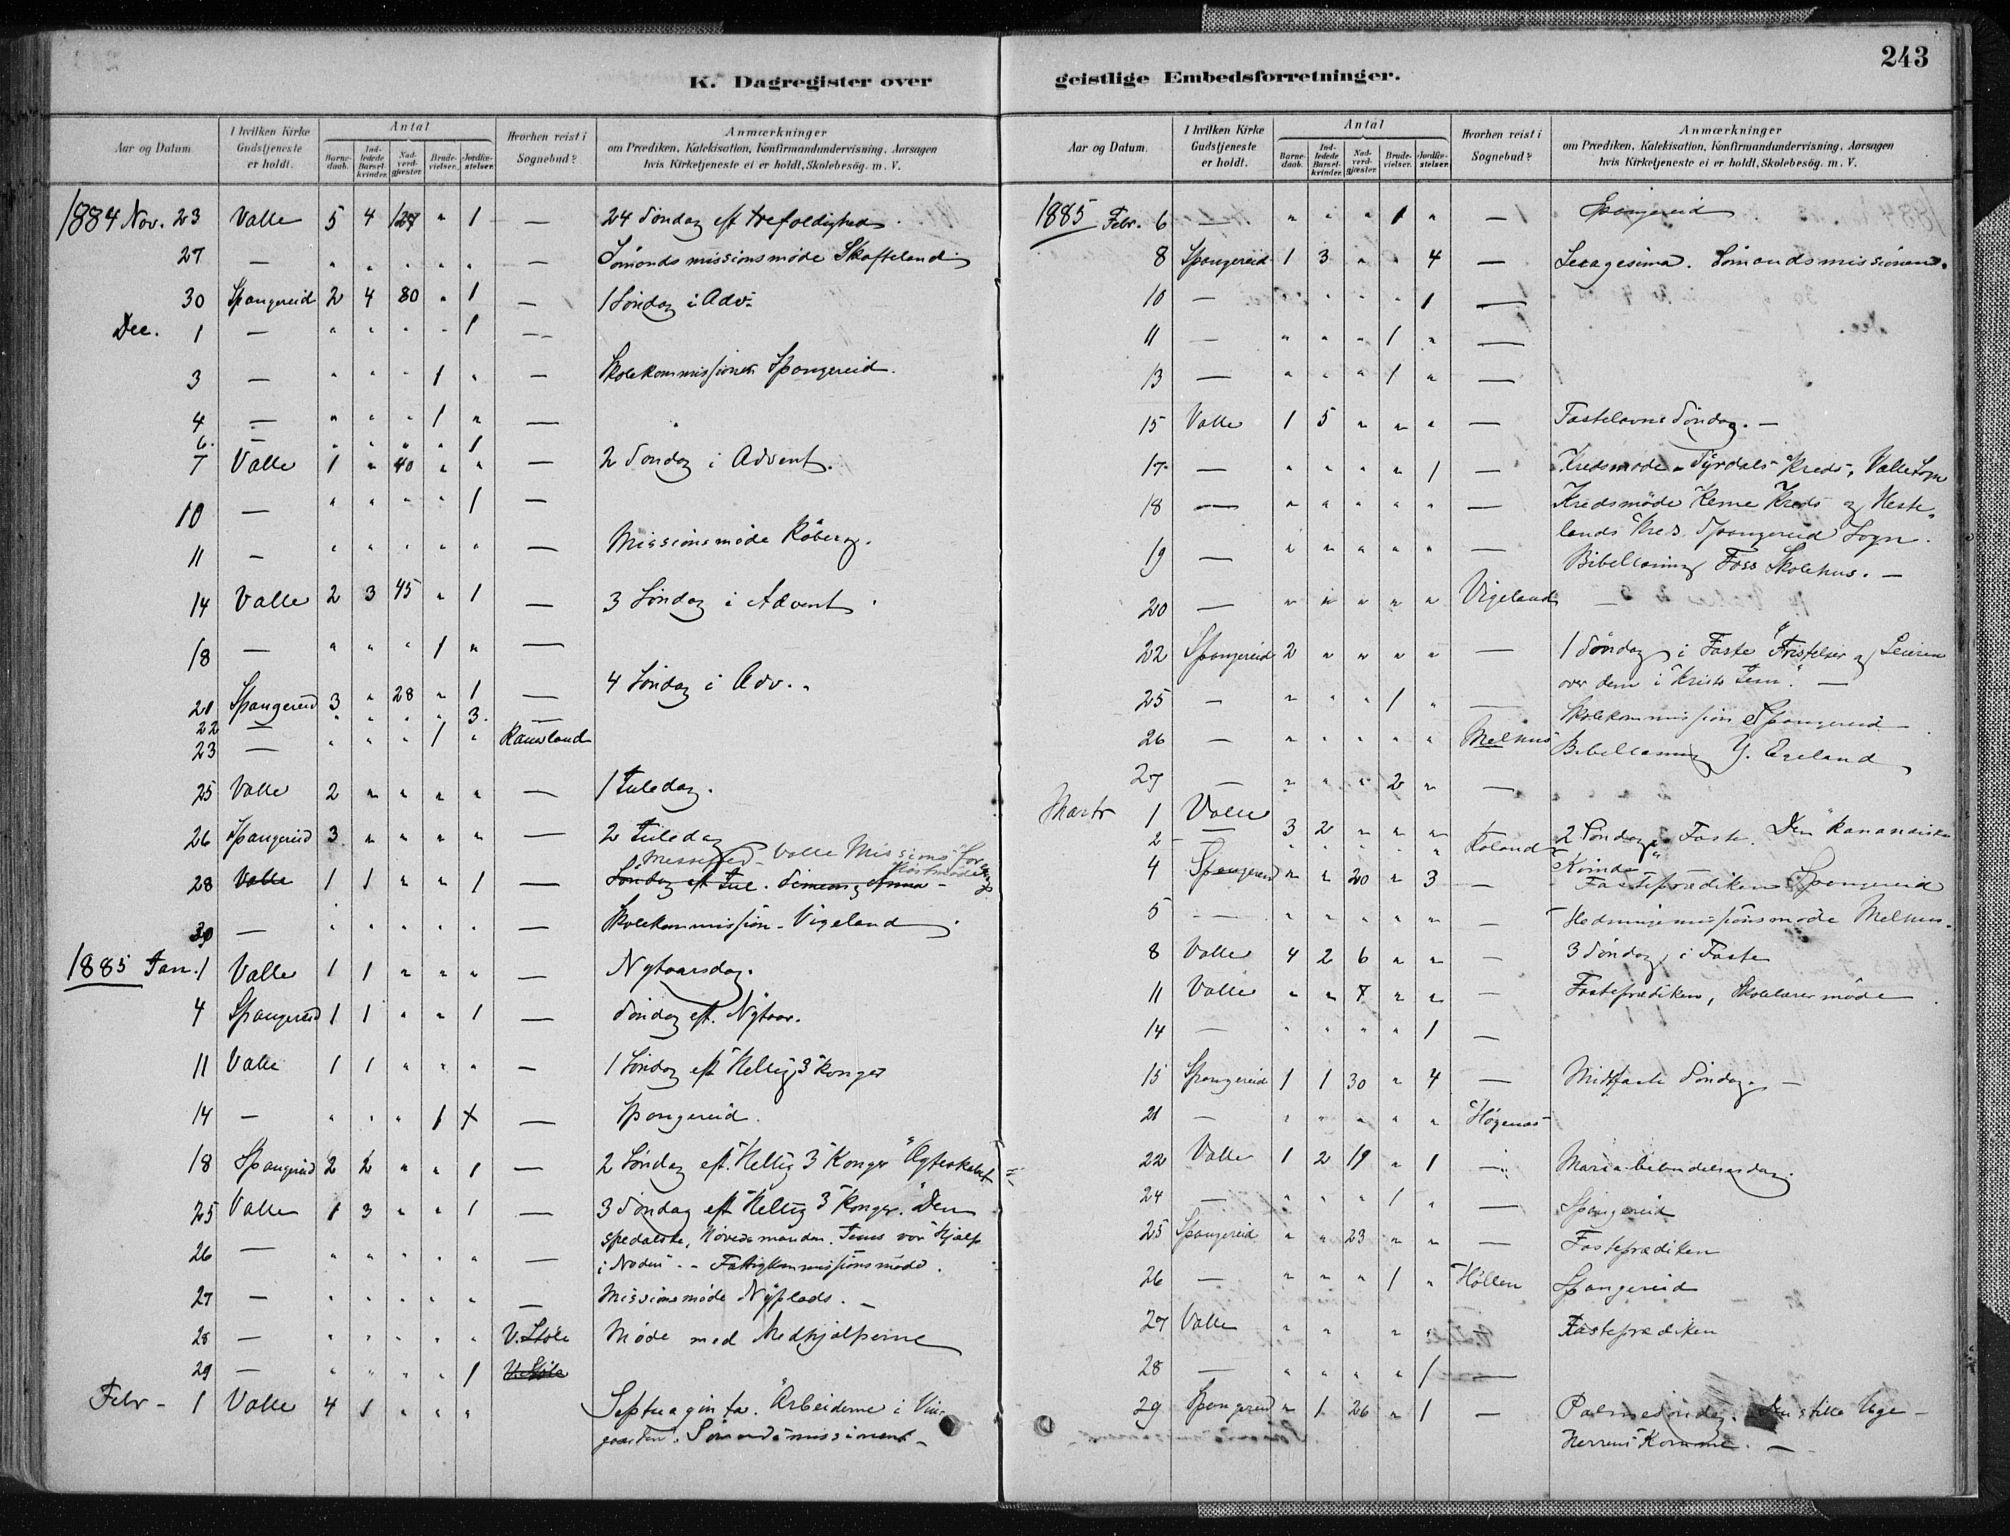 243
K. Dagregister over geistlige Embedsforretninger.
Aar og Datum. I hvilken Kirke Gudstjeneste er holdt. Antal Barnedaab. Indledede Barselkvinder. Nadverdgjæster. Brudevielser. Jordfæstelser. Hvorhen reist i Sognebud? Anmærkninger om Prædiken, Katekisation, Konfirmandundervisning, Aarsagen hvis Kirketjeneste ei er holdt, Skolebesøg. m. V.
1884 Nov. 23 Valle 5 4 " 1 — 24 Søndag eft trefoldighed.
27 — " " " " " — Sömandsmissionsmøde Skafteland
30 Spangereid 2 4 80 " 1 — 1 Søndag i Adv.
Dec. 1 — " " " " 1 —
3 — " " " 1 " — Skolekommission Spangereid.
4 — " " " 1 " —
6. — " " " " 1
7 Valle 1 " 40 " " — 2 Søndag i Advent.
10 — " " " " 1 —
11 — " " " " " — Missionsmøde Råberg.
14 Valle 2 3 45 " 1 — 3 Søndag i Advent.
18 — " " " 1 " —
21 Spangereid 3 " 28 " 1 — 4 Søndag i Adv.
22 — " " " " 3. —
23 — " " " 1 " Ramsland
25 Valle 2 " " " " — 1 Juledag.
26 Spangereid 3 " " " " — 2 Juledag
Messefred - Valle Missions
28 Valle 1 1 " " 1 — Søndag eft Jul. Simeon og Anna -
30 — " " " " " — Skolekommission - Vigeland.
1885 Jan. 1 Valle 1 1 " " " — Nytaarsdag.
4 Spangereid 1 1 " " 1 — Søndag eft. Nytaar.
11 Valle 1 1 " " " — 1 Søndag eft Hellig 3 konger
14 — " " " 1 — Spangereid.
18 Spangereid 2 2 " " 1 — 2 Søndag eft. Hellig 3 Konger "Ægteskabet
25 Valle 1 3 " " 1 — 3 Søndag eft Hellig 3 Konger. "Den
spedalske, Høvedsmanden. Jesus vor Hjælp
26 — " " " " " — i Nöden". - Fattigkommissionsmøde.
27 — " " " " " — Missionsmøde Nyplads. —
28 — " " " " " V. Støle Møde med Medhjælperne
29 — " " " " 1 V. Støle
Febr - 1 Valle 4 1 " " " Septuaginta. "Arbeiderne i Viin-
gaarden". Sömandsmissionen -
Aar og Datum. I hvilken Kirke Gudstjeneste er holdt. Antal Barnedaab. Indledede Barselkvinder. Nadverdgjæster. Brudevielser. Jordfæstelser. Hvorhen reist i Sognebud? Anmærkninger om Prædiken, Katekisation, Konfirmandundervisning, Aarsagen hvis Kirketjeneste ei er holdt, Skolebesøg. m. V.
1885 Febr. 6 — " " " 1 " — Spangereid
8 Spangereid 1 3 " " 4 — Sexagesima. Sömandsmissionen.
10 — " " " 1 —
11 — " " " 1 " —
13 — " " " 1 " —
15 Valle 1 5 " " " — Fastelavns Söndag. —
17 — " " " " 1 — Kredsmøde Syrdals Kreds, Valle Sogn
18 — " " " " " — Kredsmøde Kerne Kreds og Heste-
lands Kreds Spangereid Sogn.
19 — " " " " " — Bibellæsning Foss Skolehus. —
20 — " " " " " Vigeland —
22 Spangereid 2 " " " " — 1 Söndag i Faste "Fristelser og Seieren
over dem i Kristo Jesu". —
25 — " " " 1 " — Skolekommission Spangereid
26 — " " " " " Melhus Bibellæsning Y. Egeland
27 — " " " 2 " —
Marts 1 Valle 3 2 " " " 2 Søndag i Faste. Den "kananæiske
2 — " " " " " Roland Kvinde"
4 Spangereid " " 20 " 3 — Fasteprædiken Spangereid
5 — " " " " " — Hedningemissionsmøde Melhus.
8 Valle 4 2 6 " " — 3 Søndag i Faste
11 Valle " " 7 " " — Fasteprædiken, Skolelærermøde
14 — " " " " 1 —
15 Spangereid 1 1 30 " 4 — Midfaste Söndag. —
21 — " " " " " Högenes
22 Valle 1 2 19 " 1 — Maria bebudelsesdag.
24 — " " " 1 " — Spangereid
25 Spangereid " " 23 " " — Fasteprædiken
26 — " " " 1 " Höllen Spangereid
27 Valle " " " " Fasteprædiken
28 — " " " " 1 —
29 Spangereid " 1 26 " 1 — Palmesöndag. Den stille Uge -
Herrens Komme. —